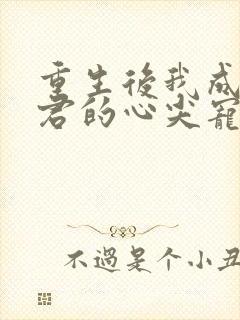 重生後我成
君的心尖寵
不過是个小丑